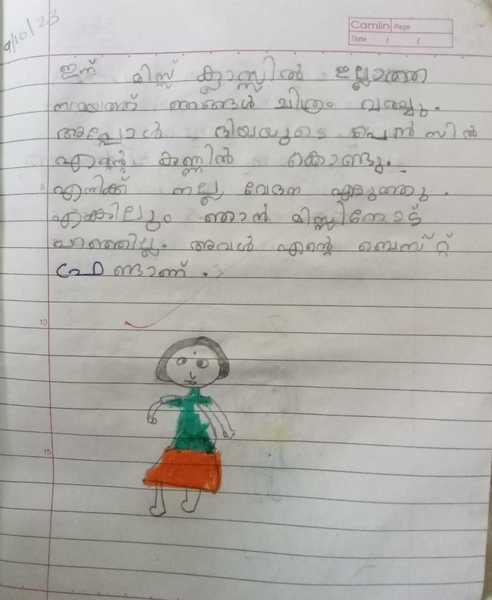 9/10/23
Camlin Page
Date / /
ഇന്ന് മിസ്സ് ക്ലാസ്സിൽ ഇല്ലാത്ത
സമയത്ത് ഞങ്ങൾ ചിത്രം വരച്ചു.
അപ്പോൾ ദിയയുടെ പെൻസിൽ
എന്റെ കണ്ണിൽ കൊണ്ടു.
എനിക്ക് നല്ല വേദന എടുത്തു.
എങ്കിലും ഞാൻ മിസ്സിനോട്
പറഞ്ഞില്ല. അവൾ എന്റെ ബെസ്റ്റ്
ഫ്രണ്ടാണ്.
10
15